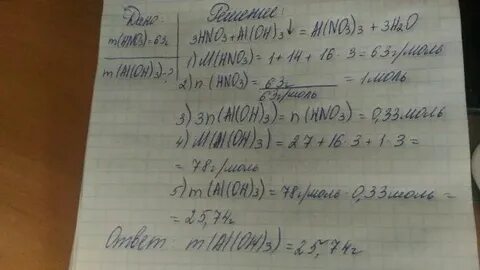 Дано:
m(HNO3)=63г
m(Al(OH)3)-?
Решение:
3HNO3+Al(OH)3↓ = Al(NO3)3 + 3H2O
1) M(HNO3) = 1+14+16·3=63г/моль
2) n(HNO3) = 63г / 63г/моль = 1моль
3) 3n(Al(OH)3) = n(HNO3) = 0,33моль
4) M(Al(OH)3) = 27+16·3+1·3 =
= 78г/моль
5) m(Al(OH)3) = 78г/моль·0,33моль =
= 25,74г
Ответ: m(Al(OH)3) = 25,74г